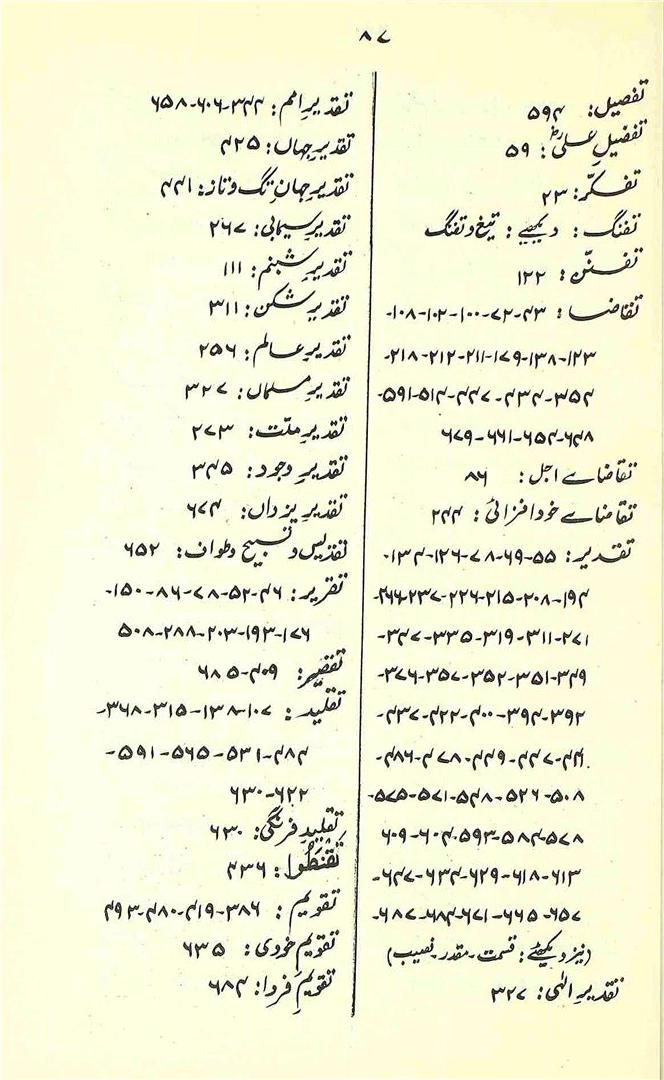 ۸۷
تفصیل: ۵۹۴
تفضیلِ علیؓ: ۵۹
تفکّر: ۲۳
تفنگ: دیکھیے: تیغ و تفنگ
تفنّن: ۱۲۲
تقاضا: ۴۳-۷۲-۱۰۰-۱۰۲-۱۰۸-
۱۲۳-۱۳۸-۱۷۹-۲۱۱-۲۱۲-۲۱۸-
۳۵۴-۴۳۴-۴۴۷-۵۱۴-۵۹۱-
۶۴۸-۶۵۴-۶۶۱-۶۷۹
تقاضاے اجل: ۸۶
تقاضاے خود افزائی: ۲۴۴
تقدیر: ۵۵-۶۹-۷۸-۱۲۶-۱۳۴-
۱۹۴-۲۰۸-۲۱۵-۲۲۶-۲۳۷-۲۶۶-
۲۷۱-۳۱۱-۳۱۹-۳۳۵-۳۴۷-
۳۴۹-۳۵۱-۳۵۲-۳۵۷-۳۷۶-
۳۹۲-۳۹۴-۴۰۰-۴۲۲-۴۳۷-
۴۴۱-۴۴۷-۴۴۹-۴۷۸-۴۸۶-
۵۰۸-۵۲۶-۵۴۸-۵۷۱-۵۷۵-
۵۷۸-۵۸۴-۵۹۳-۶۰۴-۶۰۹
۶۱۳-۶۱۸-۶۲۹-۶۳۴-۶۴۷-
۶۵۷-۶۶۵-۶۷۱-۶۸۴-۶۸۷-
(نیز دیکھئے: قسمت۔ مقدر۔ نصیب)
تقدیرِ الٰہی: ۳۲۷
تقدیرِ امم: ۳۴۴-۶۰۶-۶۵۸
تقدیرِ جہاں: ۴۲۵
تقدیرِ جہانِ تگ و تاز: ۴۴۱
تقدیرِ سیمابی: ۲۶۷
تقدیرِ شبنم: ۱۱۱
تقدیر شکن: ۳۱۱
تقدیرِ عالم: ۲۵۶
تقدیرِ مسلماں: ۳۲۷
تقدیرِ ملّت: ۲۷۳
تقدیرِ وجود: ۳۴۵
تقدیرِ یزداں: ۶۷۴
تقدیس و تسبیح و طواف: ۶۵۲
تقریر: ۴۶-۵۲-۷۸-۸۶-۱۵۰-
۱۷۶-۱۹۳-۲۰۳-۲۸۸-۵۰۸
تقصیر: ۴۰۹-۶۸۵
تقلید: ۱۰۷-۱۳۸-۳۱۵-۳۶۸-
۴۸۴-۵۳۱-۵۶۵-۵۹۱-
۶۲۲-۶۳۰
تقلیدِ فرنگی: ۶۳۰
تَقْنَطُوا: ۴۳۶
تقویم: ۳۸۶-۴۱۹-۴۸۰-۴۹۳
تقویمِ خودی: ۶۳۵
تقویمِ فردا: ۶۸۴